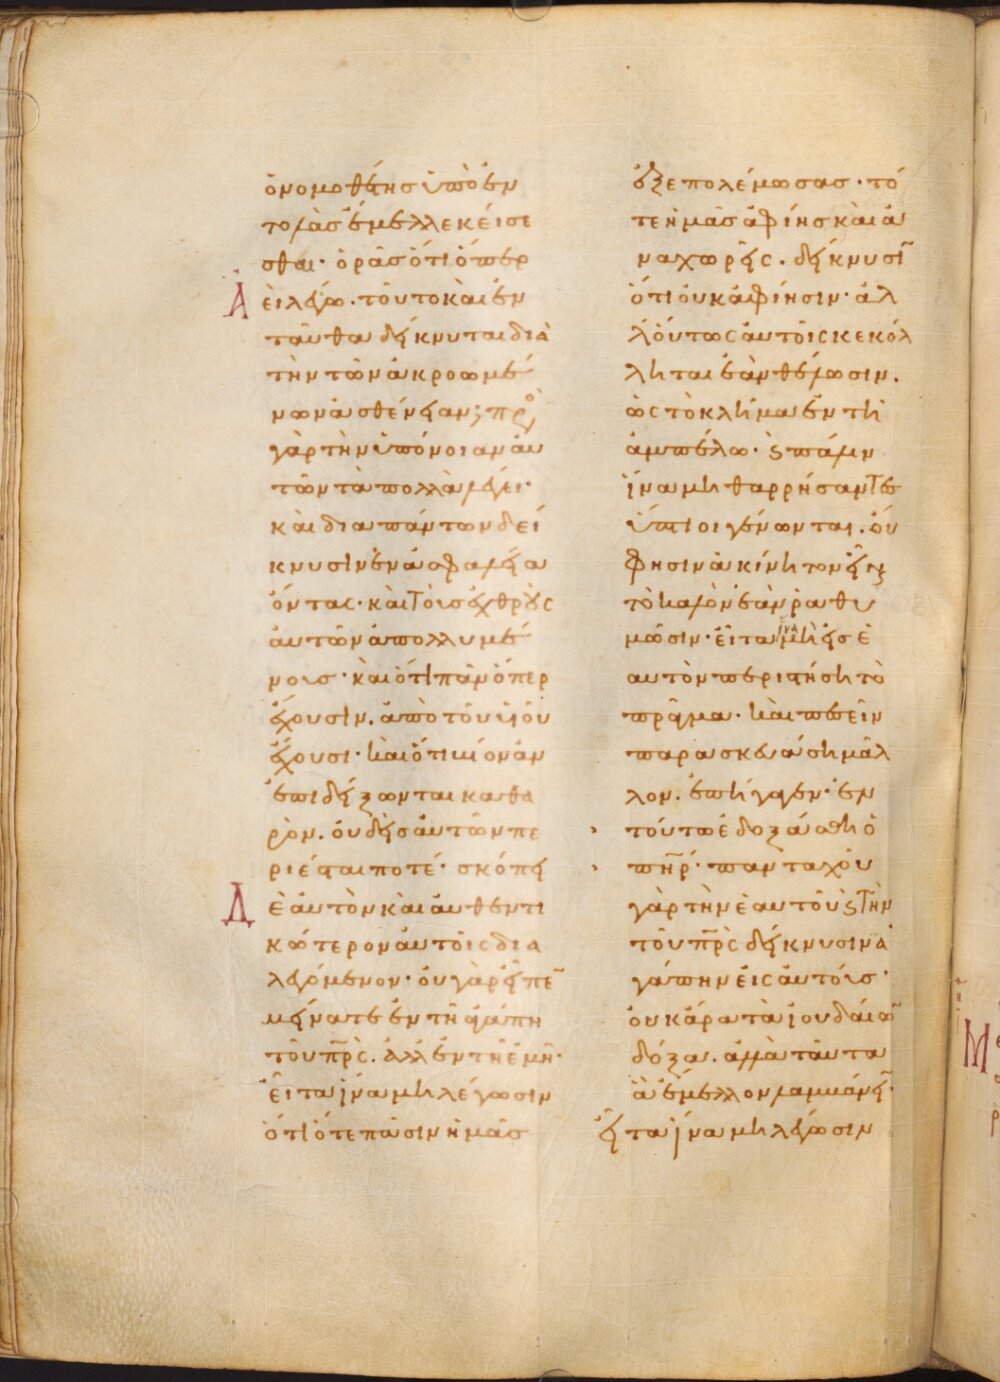 ὁνομοθέτησ ὑπὸ ἐν
τολὰσ ἔμελλε κείσε
σθαι· ὁρᾶσ ὅτι ὅπερ
ἀεὶ λέγω· τοῦτο καὶ ἐν
ταῦθα δείκνυται διὰ
τὴν τῶν ἀκροωμέ
νων ἀσθένειαν; πρὸς
γὰρ τὴν ὑπόνοιαν αὐ
τῶν τὰ πολλὰ λέγει·
καὶ διαπάντων δεί
κνυσιν ἐν ἀσφαλεία
ὄντας· καὶ τοὺσ ἐχθροὺς
αὐτῶν ἀπολλυμέ
νουσ· καὶ ὅτι πᾶν ὅπερ
ἔχουσιν. ἀπὸ τοῦ υἱοῦ
ἔχουσι· καὶ ὅτι βίον ἂν
ἐπιδείξωνται καθα
ρὸν. οὐδεὶσ αὐτῶν πε
ριέσται ποτέ· σκόπει
δὲ αὐτὸν καὶ αὐθεντι
κώτερον αὐτοῖς δια
λεγόμενον· οὐ γὰρ εἶπε̅
μείνατε ἐν τῆ ἀγάπη
τοῦ πρ̅ς. ἀλλ' ἐν τῆ ἐμῆ·
εἶτα ἵνα μὴ λέγωσιν
ὅτι ὅτε πᾶσιν ἡμᾶσ
ἐξεπολέμωσασ· τό
τε ἡμᾶσ ἀφίησ καὶ ἀ
ναχωρεῖς. δείκνυσι̅
ὅτι οὐκ ἀφίησιν· ἀλ
λ' οὕτως αὐτοῖς κεκόλ
ληται ἐὰν θέλωσιν.
ὡς τὸ κλῆμα ἐν τῆ
ἀμπέλω· ϗ πάλιν
ἵνα μὴ θαρρήσαντες
ὕπτιοι γένωνται. οὔ
φησιν ἀκίνητον εἶναι
τὸ καλὸν ἐὰν ῥαθυ
μῶσιν· εἶτα ἵνα μὴ εἰσ ἑ
αυτὸν περιστήση τὸ
πρᾶγμα· καὶ πεσεῖν
παρασκευάση μᾶλ
λον. ἐπήγαγεν· ἐν
τούτω ἐδοξάσθη ὁ
πη̅ρ· πανταχοῦ
γὰρ τὴν ἑαυτοῦ ϗ τὴν
τοῦ πρ̅ς δείκνυσιν ἀ
γάπην εἰς αὐτούσ·
οὐκ ἄρα τὰ ἰουδαίω̅
δόξα. ἀλλὰ ταῦτα
ἃ ἔμελλον λαμβάνει̅·
εἶτα ἵνα μὴ λέγωσιν